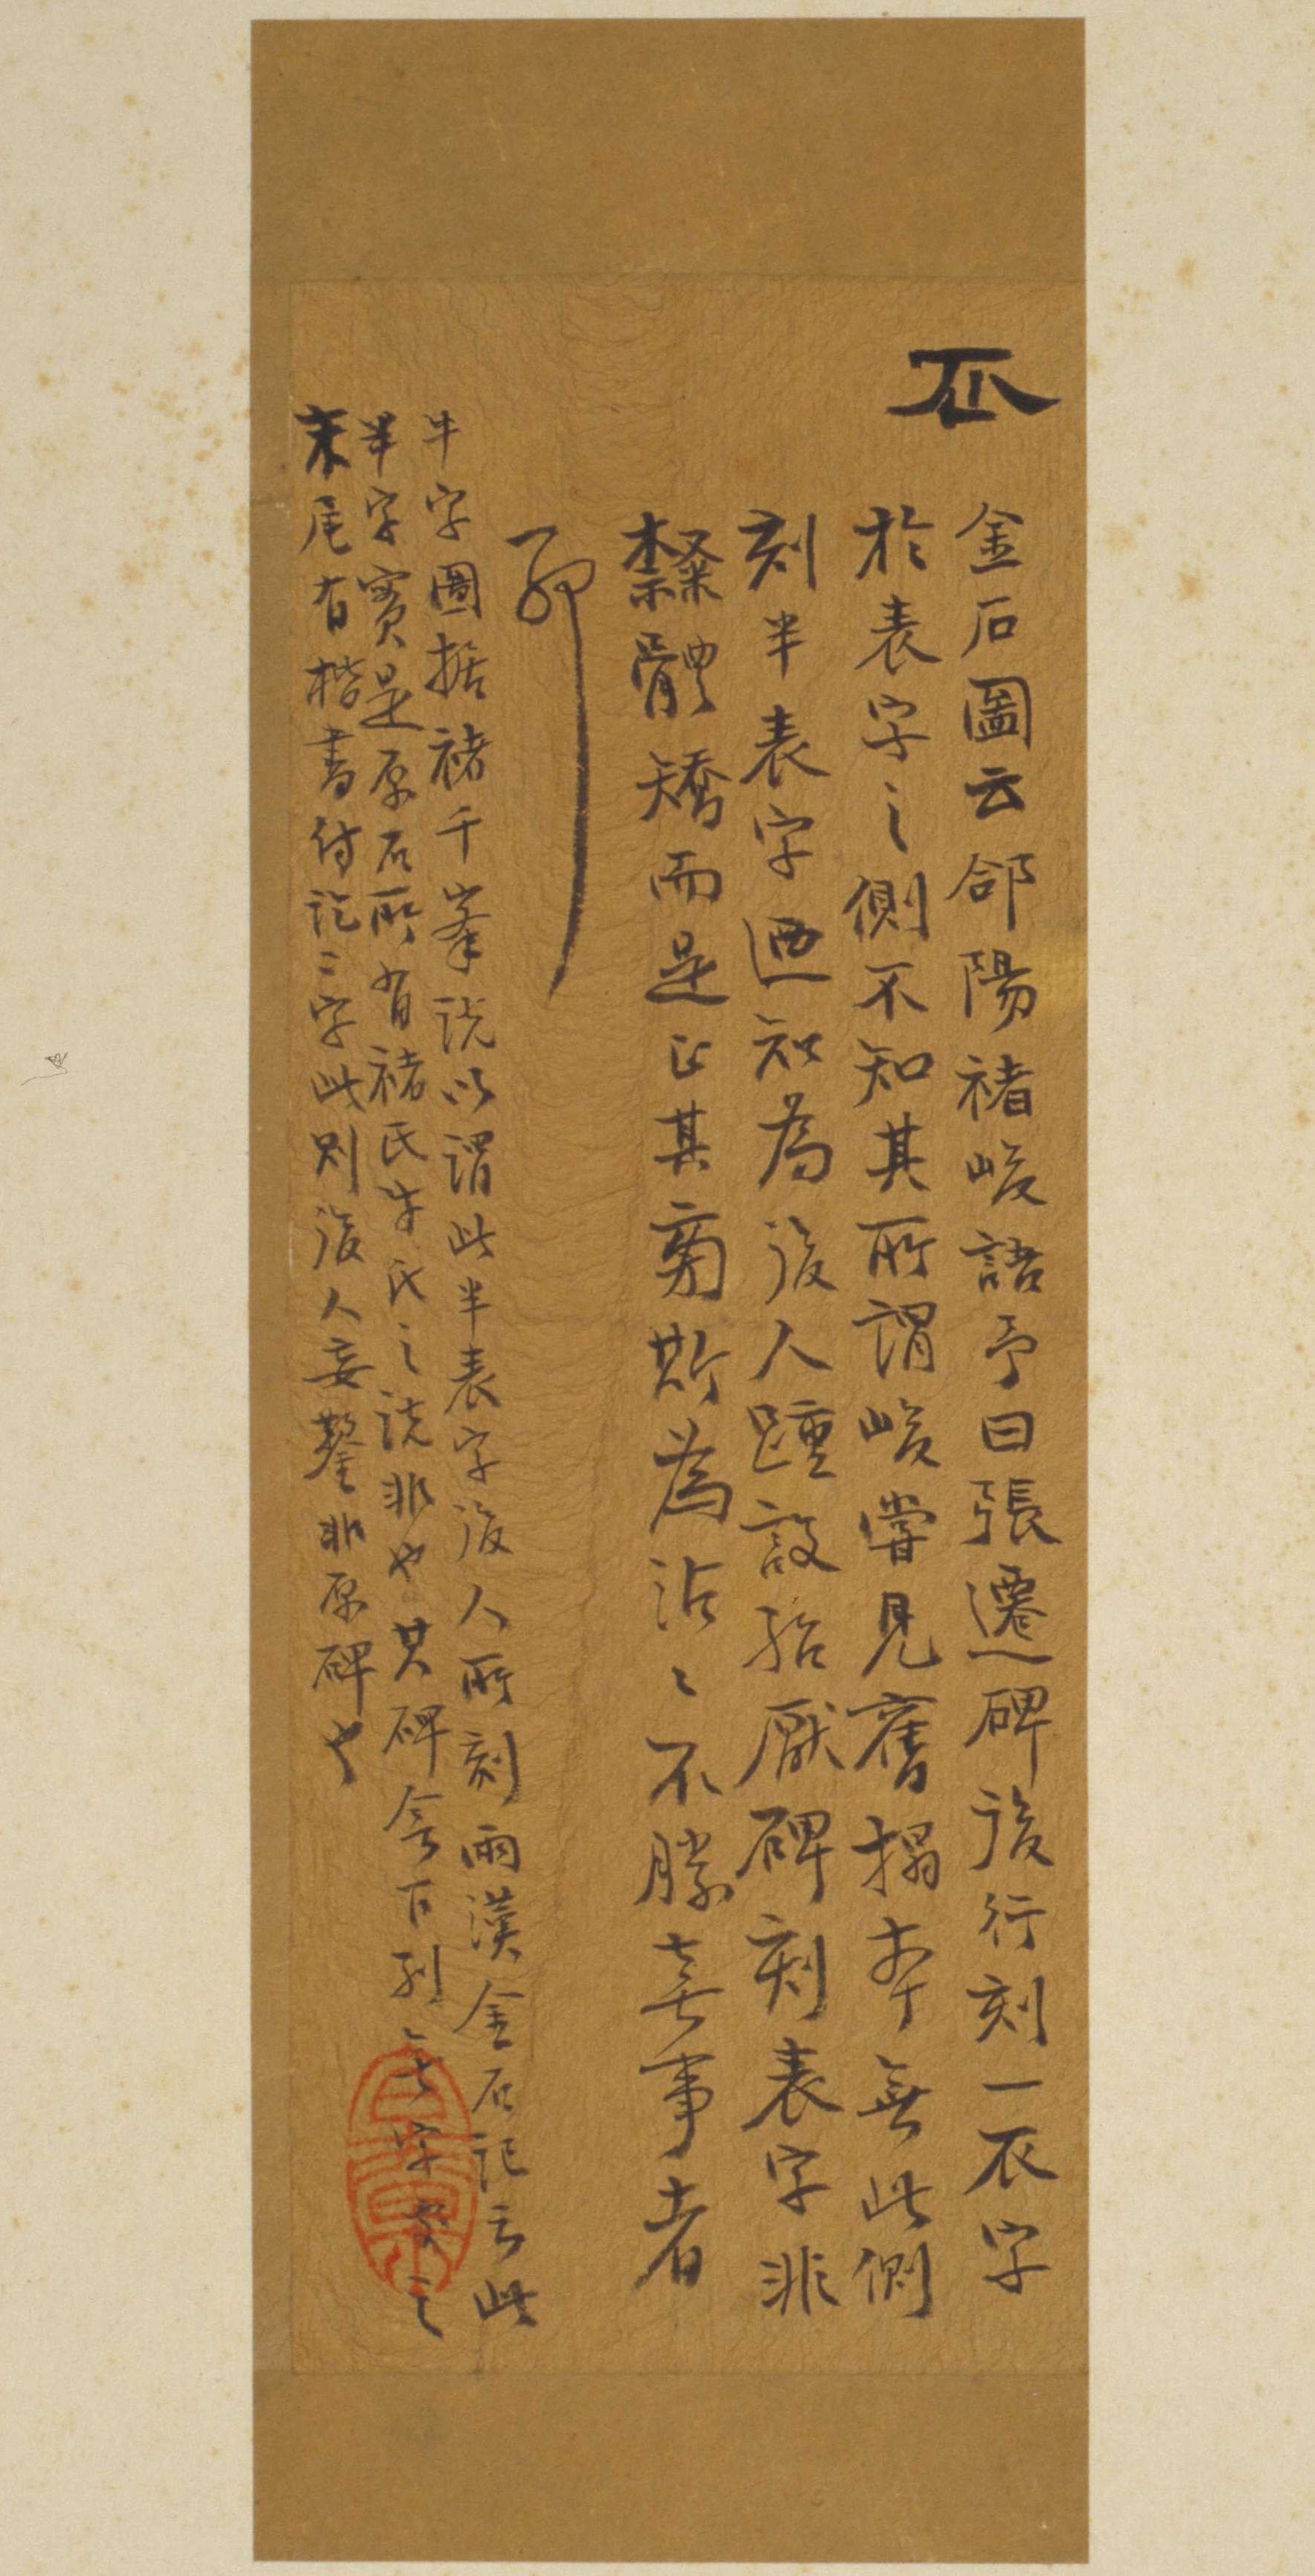 金石圖云郃陽褚峻語予曰張遷碑後行刻一𧘇字
於表字之側不知其所謂峻嘗見舊搨本無此側
刻半表字迺知為後人踵設殆厭碑刻表字非
隸體矯而是正其旁斯為沾〻不勝喜事者
耶
牛字圖据褚千峯說以謂此半表字後人所刻兩漢金石記云此
半字實是原石所有褚氏牛氏之說非也其碑
末尾有楷書付訖二字此則後人妄鑿非原碑也